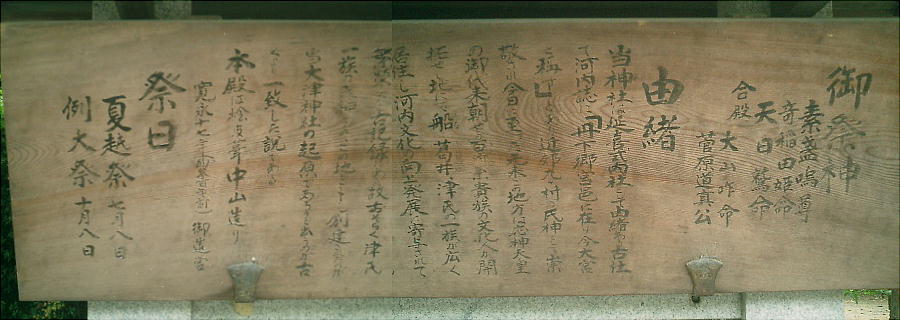 御祭神
素盞嗚尊
奇稲田姫命
天日鷲命
合殿 大山咋命
菅原道真公
由緒
当神社は延喜式内社にて由緒ある古社
で河内誌に「丹下郷宮邑に在り今大宮
と称す」とあり近郊九村の氏神と崇
敬され今日に至って元来この地方は応神天皇
の御代来朝せる百済系貴族の文化人が開
拓せし地にて船 葛井 津氏の一族が広く
居住し河内文化の向上発展に寄与されて
一族の
当大津神社の起原であろうと
一致した説である
本殿は桧皮葺中山造り
寛永十七年 御造営
祭日
夏越祭 七月八日
例大祭 十月八日